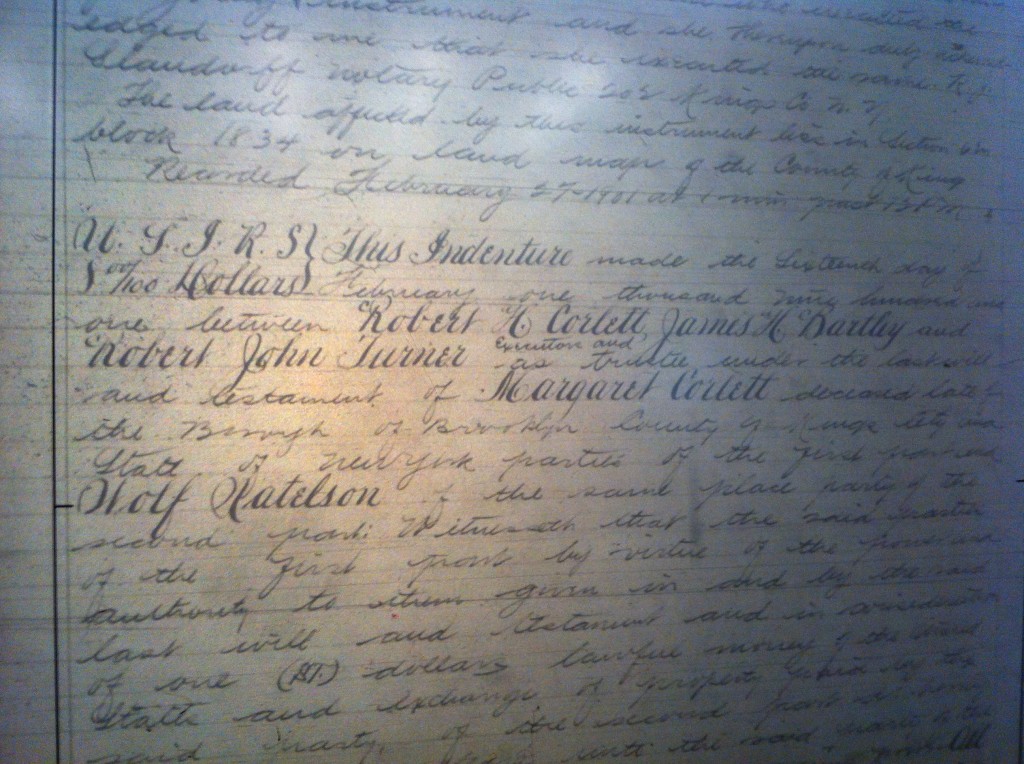 instrument and she thereupon duly
edged to me that she executed the same
notary Public 202 Kings Co N. Y
The land affected by this instrument lies in Section 6 in
block 1834 on land map of the County of Kings
Recorded February 27-1901 at 1 min past 12 P M
U. S. I. R. S } This Indenture made the Sixteenth day of
5 00/100 Dollars } February one thousand nine hundred and
one between Robert H. Corlett, James H. Bartley and
Robert John Turner Executors and as trustee under the last will
and testament of Margaret Corlett deceased late of
the Borough of Brooklyn County of Kings City and
State of New York parties of the first part and
Wolf Natelson of the same place party of the
second part: Witnesseth that the said parties
of the first part by virtue of the power and
authority to them given in and by the said
last will and testament and in consideration
of one ($1.) dollars lawful money of the United
States and exchange of property by the
said party of the second part
unto the said